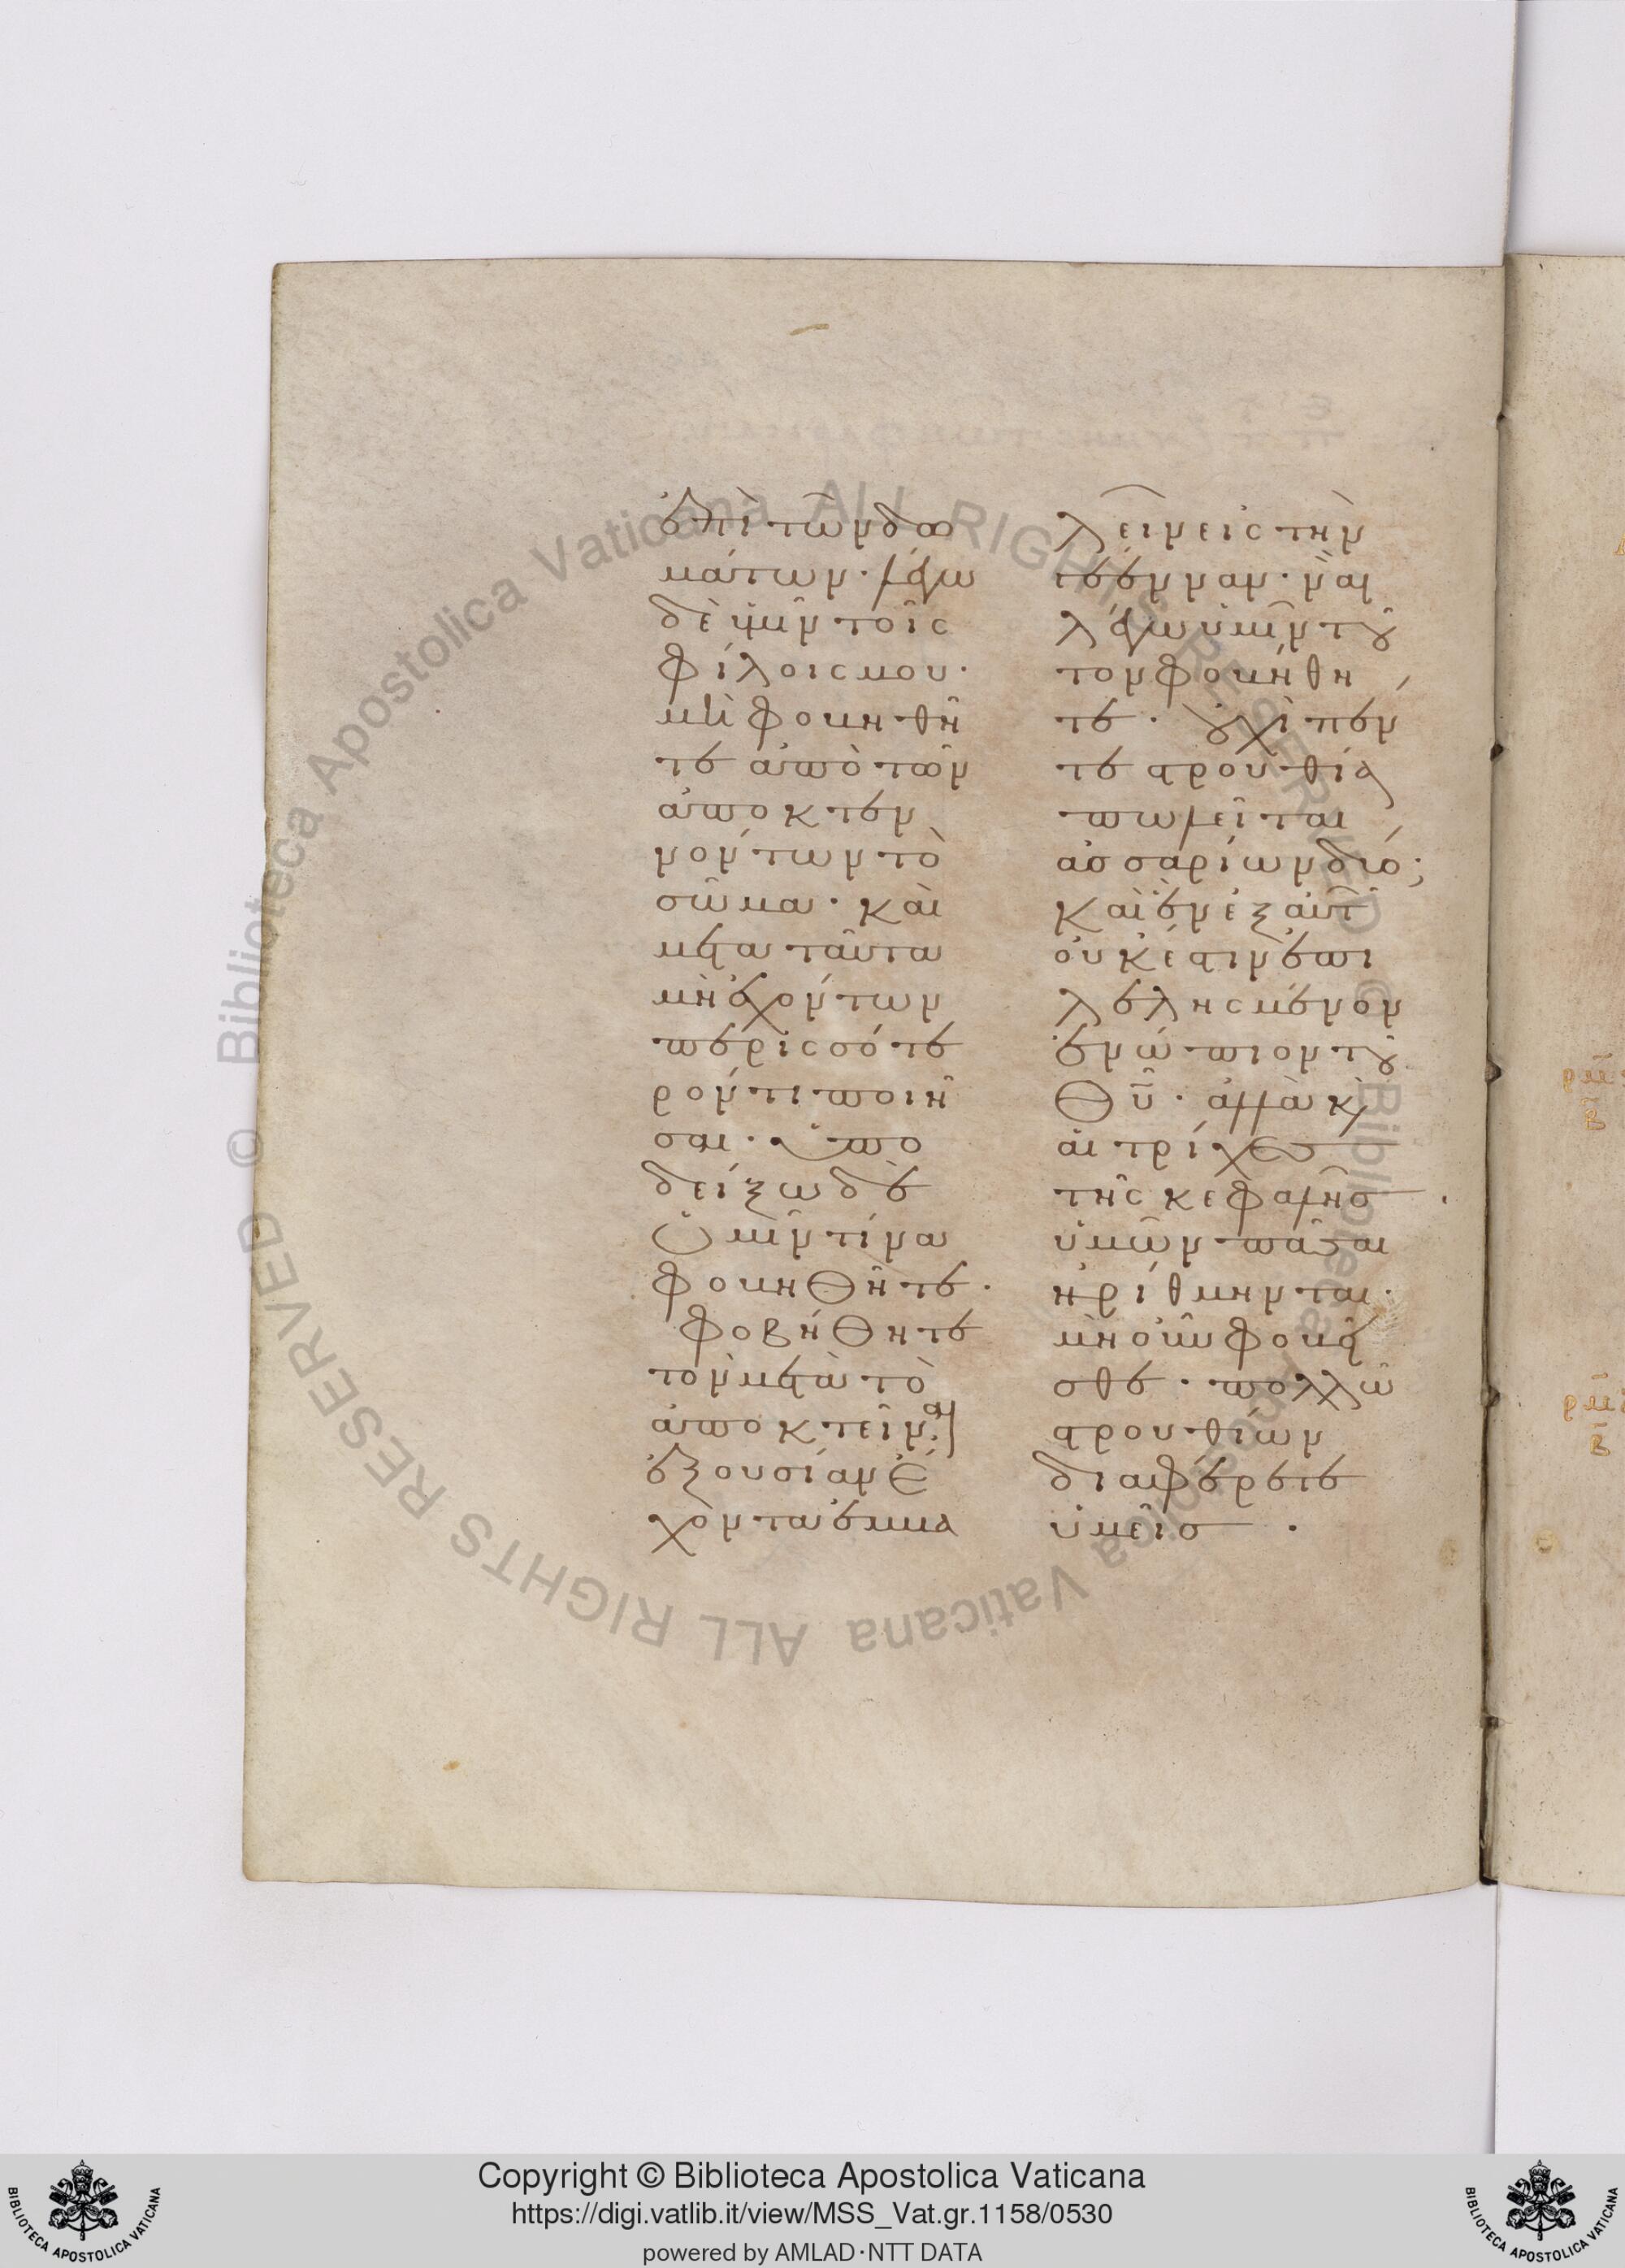 ἐπὶ τῶν δω
μάτων· λέγω
δὲ ὑμῖν τοῖς
φίλοις μου·
μὴ φοβηθῆ
τε ἀπὸ τῶν
ἀποκτεν
νόντων τὸ
σῶμα· καὶ
μετα ταῦτα
μὴ ἐχόντων
περισσότε
ρόν τι ποιῆ
σαι· ὑπο
δείξω δὲ
ὑμῖν τίνα
φοβηθῆτε·
φοβήθητε
τὸν μετὰ τὸ
ἀποκτεῖναι
ἐξουσίαν ἔ
χοντα ἐμβα
λεῖν εἰς τὴν
γέενναν· ναὶ
λέγω ὑμῖν τοῦ
τον φοβήθη
τε· οὐχὶ πέν
τε στρουθία
πωλεῖται
ἀσσαρίων δύο;
καὶ ἓν ἐξ αὐτῶ
οὐκ ἔστιν ἐπι
λελησμένον
ἐνώπιον τοῦ
Θῦ· ἀλλὰ κ
αἱ τρίχες
τῆς κεφαλῆς
ὑμῶν πᾶσαι
ἠρίθμηνται·
μὴ οὖν φοβεῖ
σθε· πολλῶ
στρουθίων
διαφέρετε
ὑμεῖς·
Copyright © Biblioteca Apostolica Vaticana
https://digi.vatlib.it/view/MSS_Vat.gr.1158/0530
powered by AMLAD·NTT DATA
BIBLIOTECA APOSTOLICA VATICANA
BIBLIOTECA APOSTOLICA VATICANA
© Biblioteca Apostolica Vaticana ALL RIGHTS RESERVED © Biblioteca Apostolica Vaticana ALL RIGHTS RESERVED